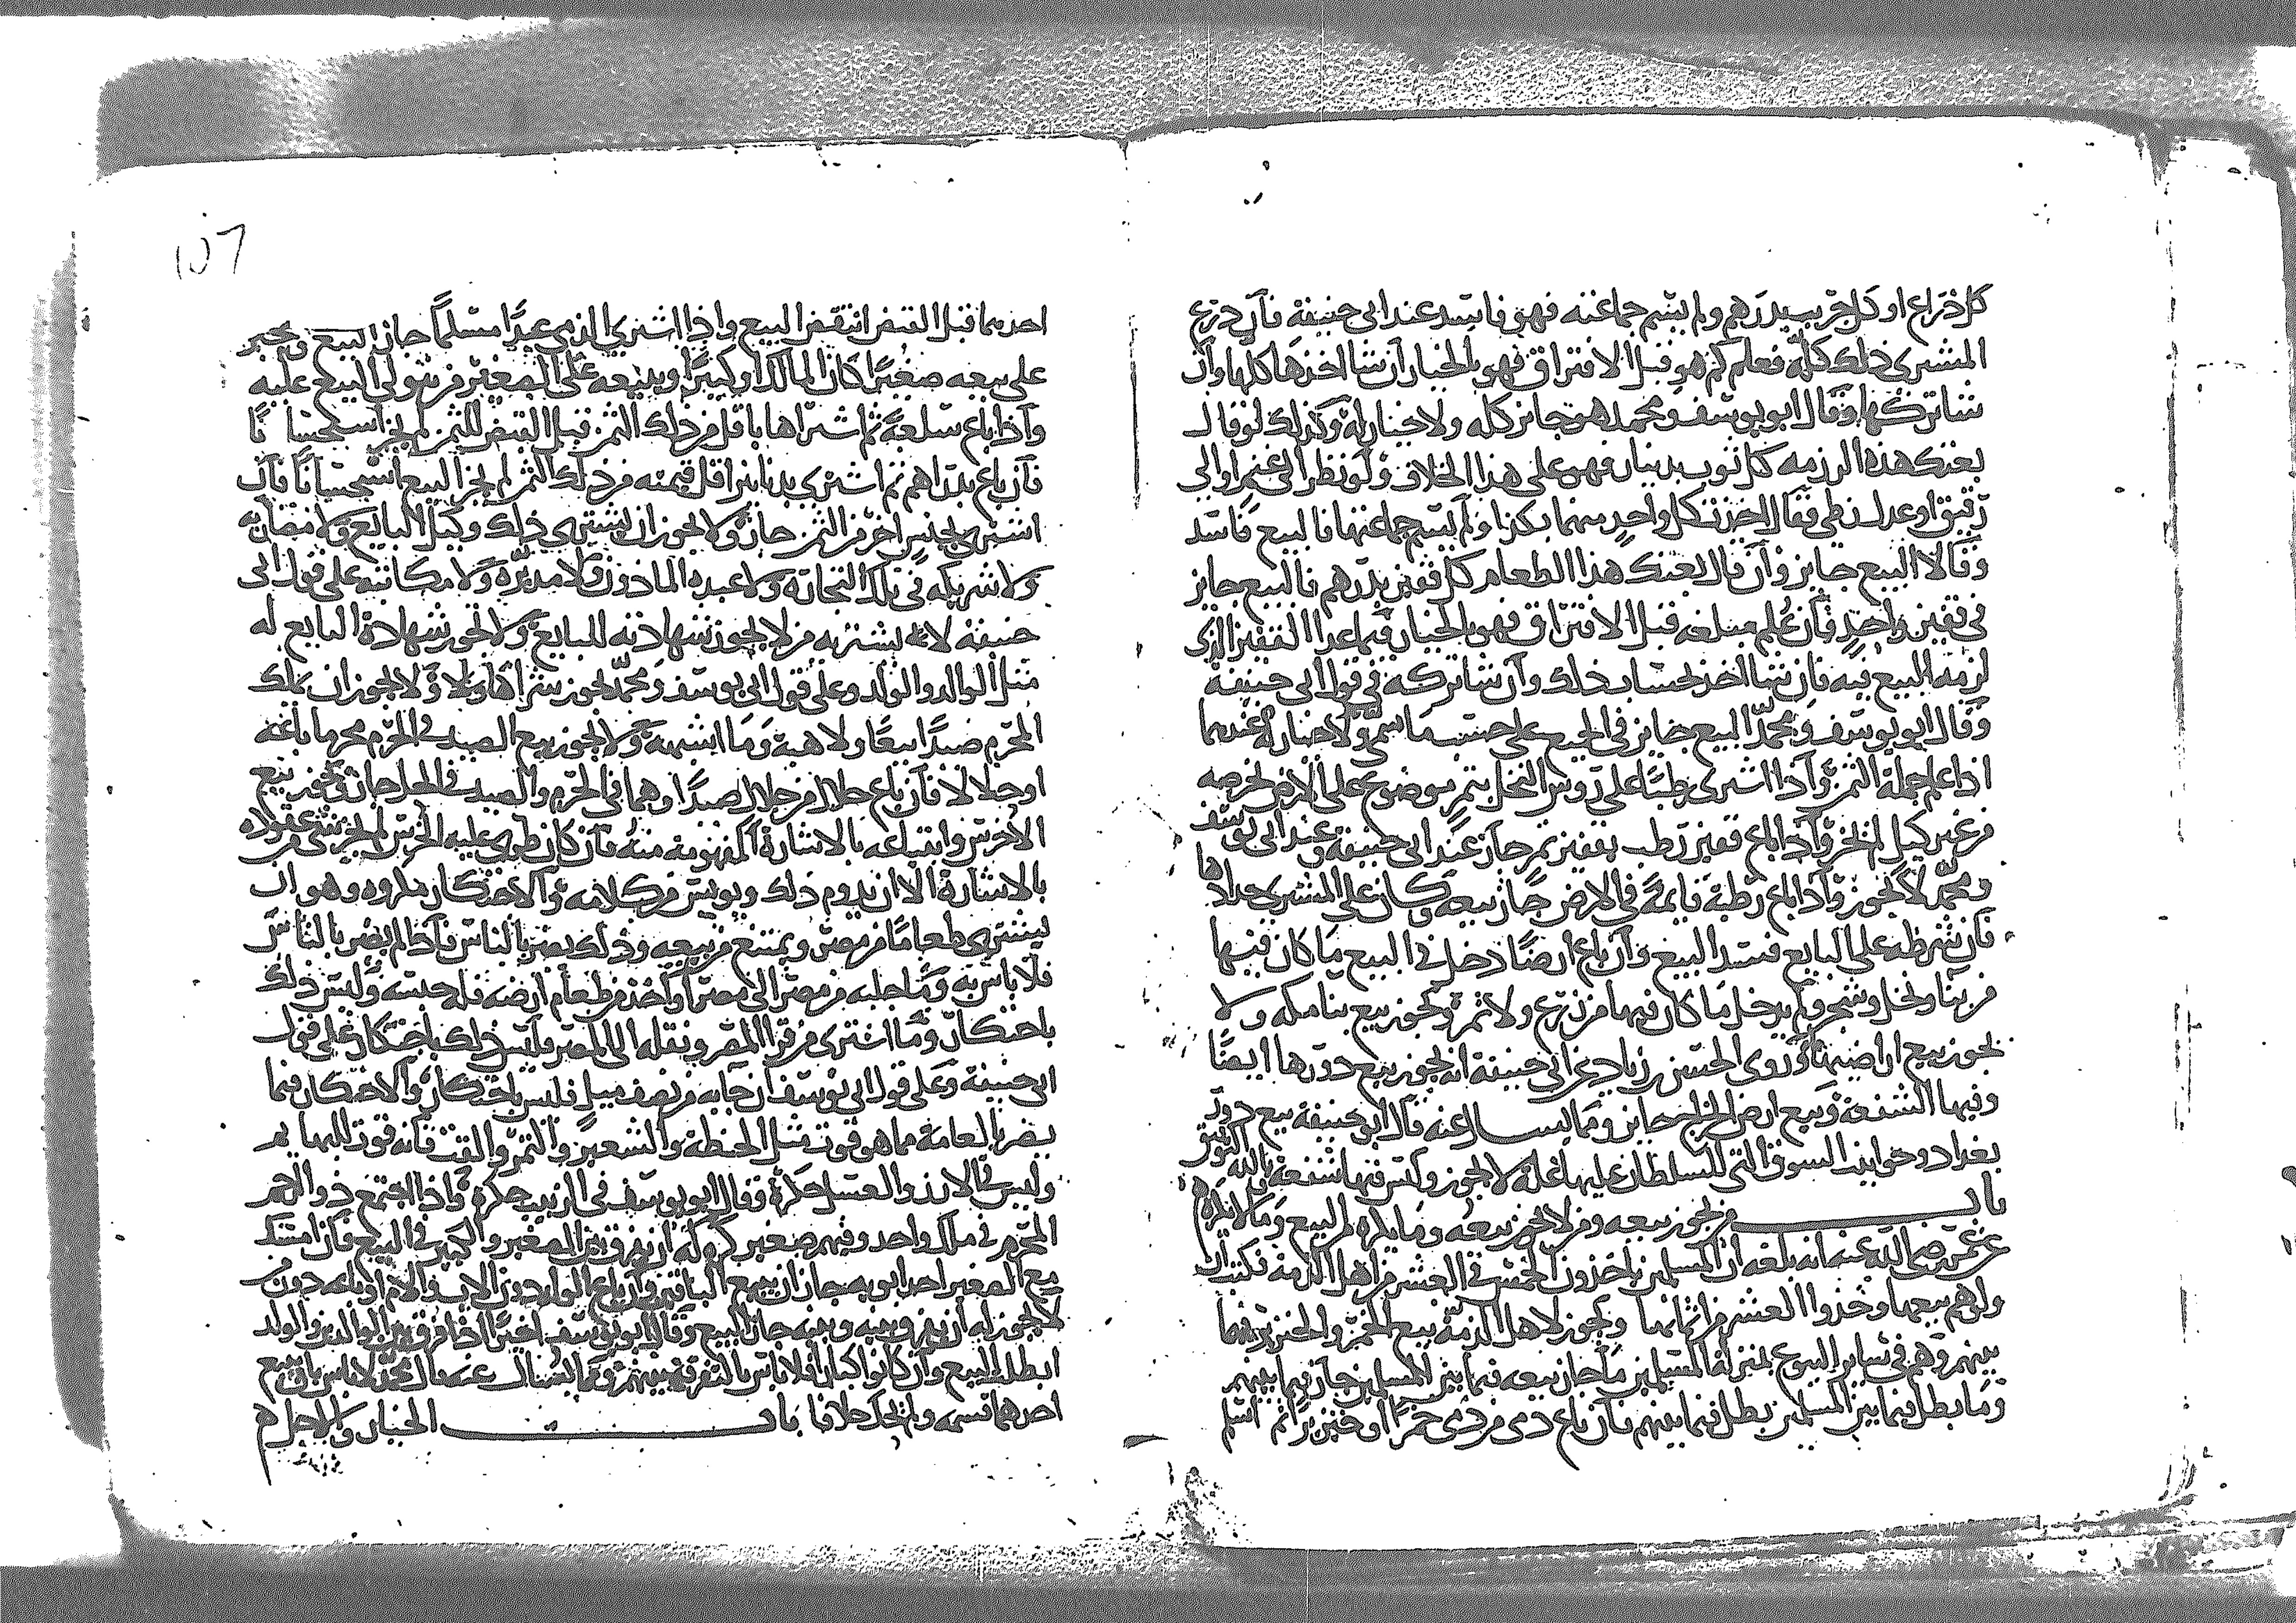 كل ذراع او كل جريب بدرهم ولم يسم جماعته فهو فاسد عند ابي حنيفة فان ذرع
المشتري ذلك كله فعلم كم هو قبل الافتراق فهو بالخيار ان شا اخذها كلها وان
شا تركها وقال ابو يوسف ومحمد هو جايز كله ولا خيار له وكذلك لو قال
بعتك هذه الرزمه كل ثوب بدينار فهو على هذا الخلاف ولو نظر الى غنم او الى
رقيق او عدل زطي فقال اخذت كل واحد منهما بكذا ولم يسم جماعتها فالبيع فاسد
وقالا البيع جايز وان قال بعتك هذا الطعام كل قفيز بدرهم فالبيع جايز
في قفيز واحد فان علم مبلغه قبل الافتراق فهو بالخيار فيما عدا القفيز الذي
لزمه البيع فيه فان شا اخذ بحساب ذلك وان شا تركه في قول ابي حنيفة
وقال ابو يوسف ومحمد البيع جايز في الجميع على حسب ما سمى ولا خيار له عندهما
اذا علم جملة الثمن واذا اشترى رطبا على روس النخل بتمر موضوع على الارض بخرصه
من غير كيل لم يجز واذا باع قفيز رطب بقفيز تمر جاز عند ابي حنيفة وعند ابي يوسف
ومحمد لا يجوز واذا باع رطبة قايمة في الارض جاز بيعه وكان على المشتري جدادها
فان شرطه على البايع فسد البيع وان باع ارضا دخل في البيع ما كان فيها
من بنا ونخل وشجر ولم يدخل ما كان فيها من زرع ولا ثمرة ويجوز بيع بنا مكه ولا
يجوز بيع اراضيها وروى الحسن بن زياد عن ابي حنيفة انه يجوز بيع دورها ايضا
وفيها الشفعة وبيع ارض الخراج جايز ومما يسال عنه قال ابو حنيفة بيع دور
بغداد وحوانيت السوق التي للسلطان عليها غلة لا يجوز وليس فيها شفعة بالله التوفيق
باب من يجوز بيعه ومن لا يجوز بيعه وما يكره من البيع وما لا يكره
عن عمر رضي الله عنه انه بلغه ان المسلمين ياخذون الخمر في العشر من اهل الذمة فكتب ان
ولوهم بيعها وخذوا العشر من اثمانها ويجوز لاهل الذمة بيع الخمر والخنزير فيما
بينهم وهم في ساير البيوع بمنزلة المسلمين ما جاز بيعه فيما بين المسلمين جاز فيما بينهم
وما بطل فيما بين المسلمين بطل فيما بينهم فان باع ذمي من ذمي خمرا او خنزيرا ثم اسلم
١٥٦
احدهما قبل القبض انتقض البيع واذا اشترى الذمي عبدا مسلما جاز البيع ويجبر
على بيعه صغيرا كان المالك او كبيرا ويبيعه على الصغير من يتولى البيع عليه
واذا باع سلعة ثم اشتراها باقل من ذلك الثمن قبل القبض للثمن لم يجز استحسانا
فان باع بدراهم ثم اشترى بدنانير اقل قيمته من ذلك الثمن لم يجز البيع استحسانا فان
اشترى بجنس اخر من الثمن جاز ولا يجوز ان يشتري ذلك وكيل البايع ولا مضاربه
ولا شريكه في تلك التجارة ولا عبده الماذون ولا مدبره ولا مكاتبه على قول ابي
حنيفة لا يشتريه من لا يجوز شهادته للبايع ولا تجوز شهادة البايع له
مثل الوالد والولد وعلى قول ابي يوسف ومحمد يجوز شراها ولا يجوز ان يملك
المحرم صيدا بيعا ولا هبة وما اشبهه ولا يجوز بيع الصيد في الحرم محرما باعه
او حلالا فان باع حلال من حلال صيدا وهما في الحرم والصيد في الحل جاز بيع
الاخرس وابتياعه بالاشارة المفهومة منه فان كان طري عليه الخرس لم يجز شي من عقوده
بالاشارة الا ان يدوم ذلك ويويس من كلامه والاحتكار مكروه وهو ان
يشتري طعاما من مصر ويمتنع من بيعه وذلك يضر بالناس فاذا لم يضر بالناس
فلا باس به وما جلبه من مصر الى مصر او اخذ من طعام ارضه فله حبسه وليس ذلك
باحتكار وما اشترى من قرى المصر ونقله الى المصر وليس ذلك باحتكار على قول
ابي حنيفة وعلى قول ابي يوسف ان جابه من نصف ميل فليس باحتكار والاحتكار فيما
يضر بالعامة مما هو قوت مثل الحنطة والشعير والتمر والقت فانه قوت للبهايم
وليس في الارز والعسل حكرة وقال ابو يوسف في الزيت حكرة واذا اجتمع ذو الرحم
المحرم في ملك واحد وفيهم صغير كره له ان يفرق بين الصغير والكبير في البيع فان امسك
مع الصغير احد ابويه جاز ان يبيع الباقين وان باع الولد دون الاب والام او باعه دون من
لا يجوز له ان يفرق بينه وبينه جاز البيع وقال ابو يوسف اخيرا اذا فرق بين الوالدين والولد
ابطل البيع وان كانوا كبارا فلا باس بالتفرقة بينهم ومما يسال عنه قال محمد لا باس بان يبيع
احدهما نسمه ولم يحك خلافا باب الخيار والاجل